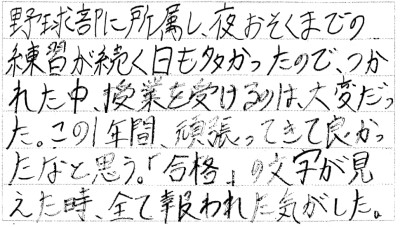 野球部に所属し、夜おそくまでの
練習が続く日も多かったので、つか
れた中、授業を受けるのは、大変だっ
た。この1年間、頑張ってきて良かっ
たなと思う。「合格」の文字が見
えた時、全て報われた気がした。